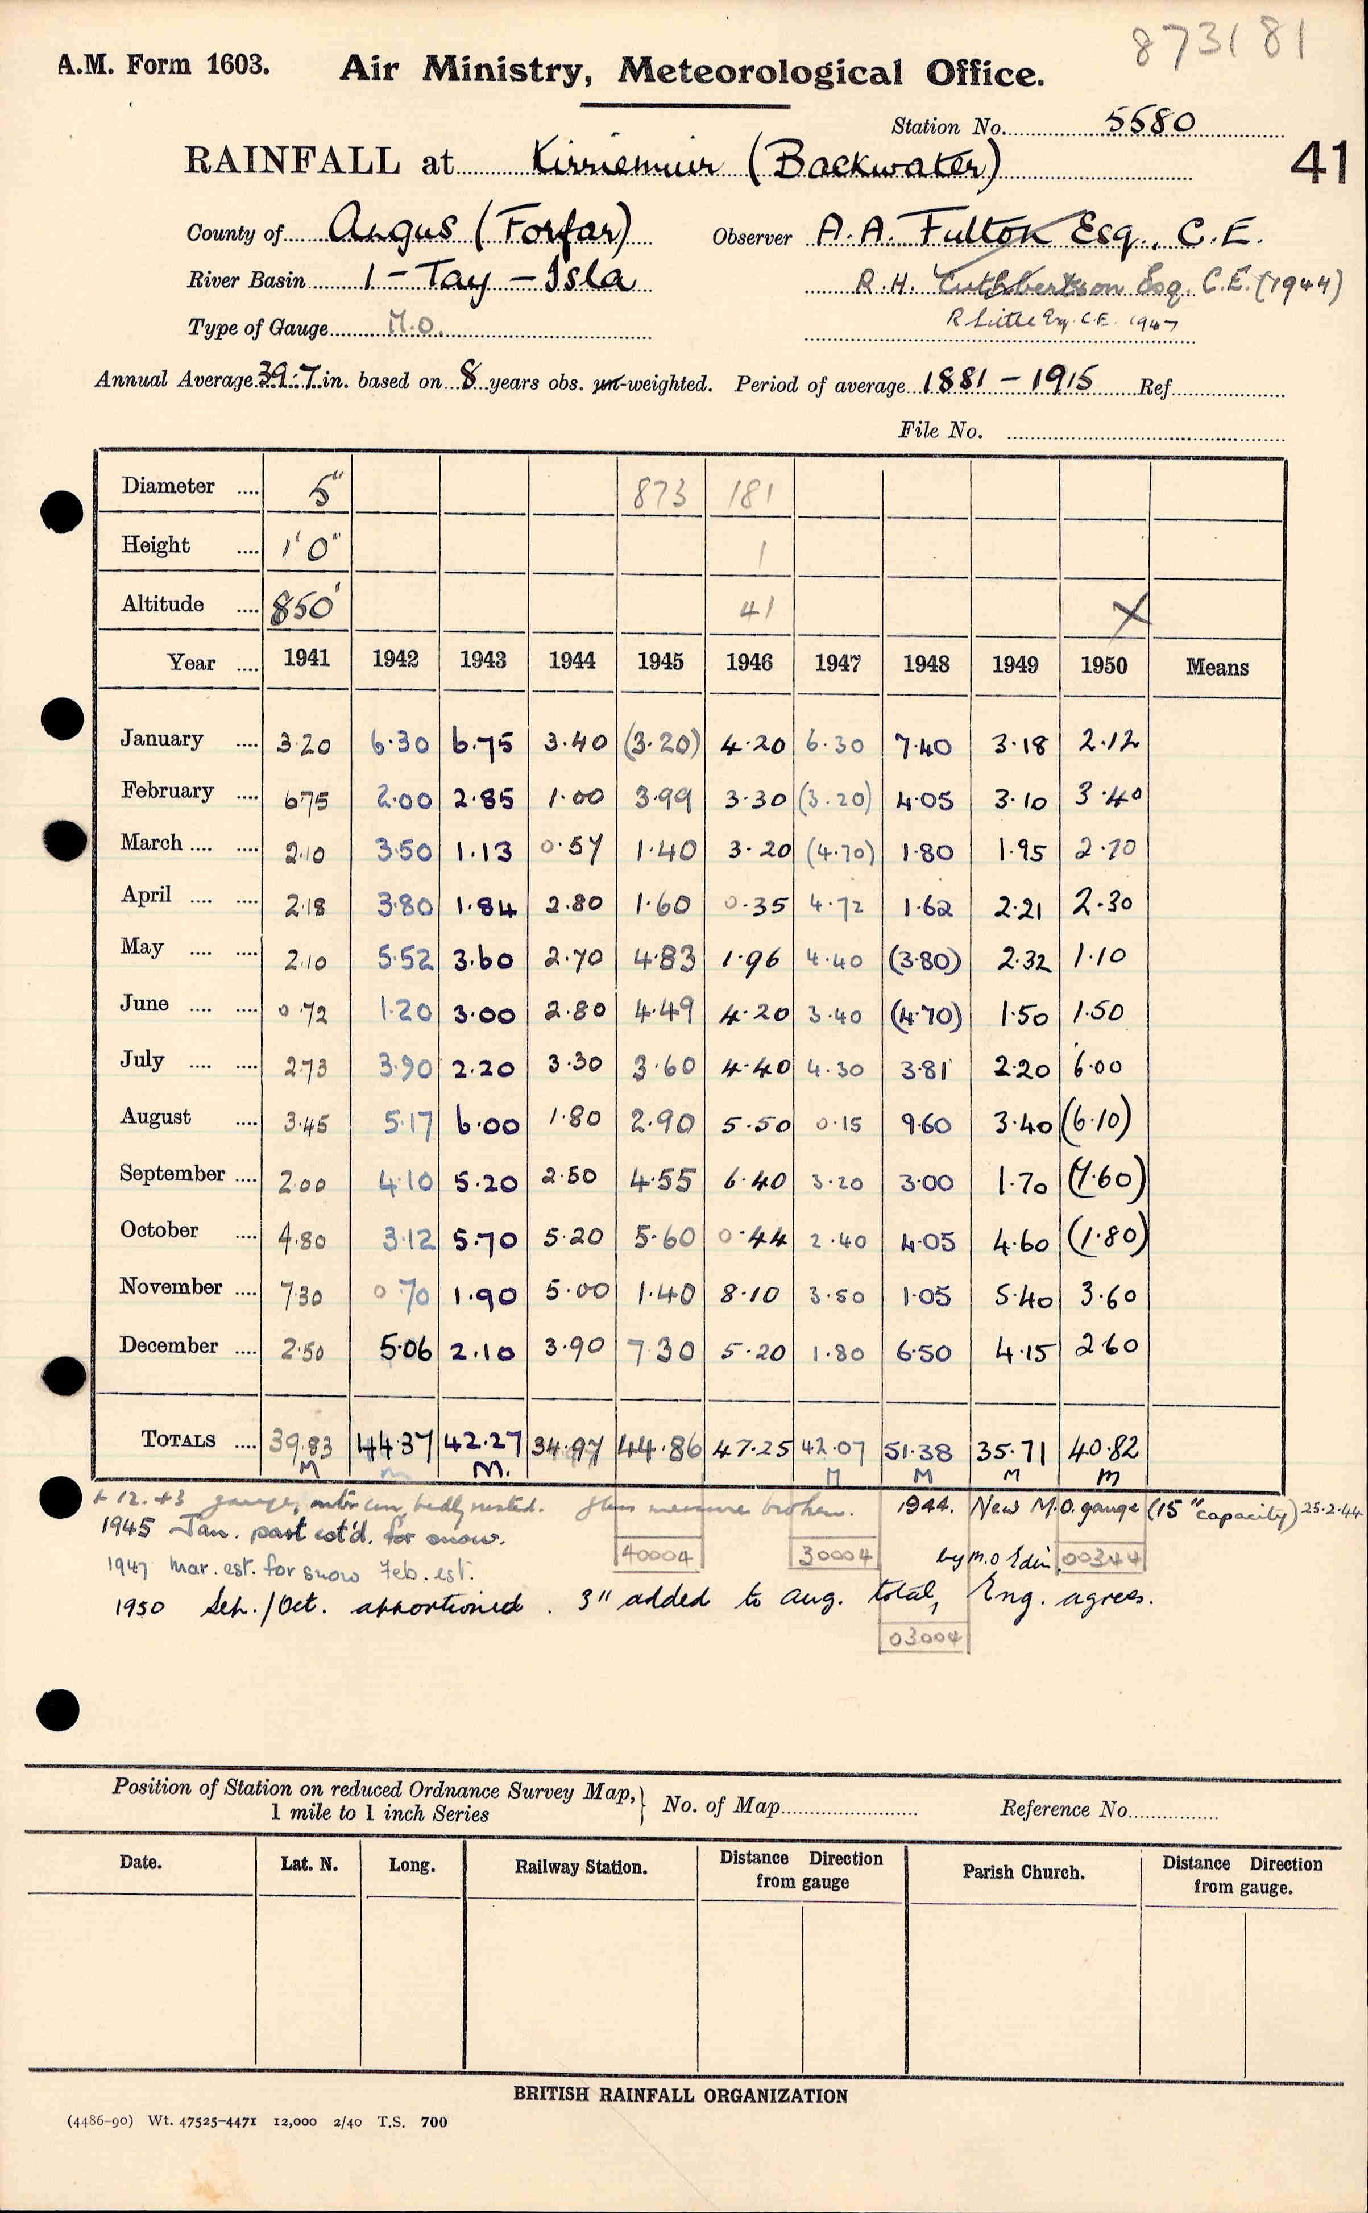 873181
A.M. Form 1603. Air Ministry, Meteorological Office.
Station No. 5580
RAINFALL at Kirriemuir (Backwater) 41
County of Angus (Forfar) Observer A.A. Fulton Esq., C.E.
River Basin 1 - Tay - Isla R.H. Cuthbertson Esq. C.E. (1944)
Type of Gauge M.O. R Little Esq. C.E. 1947
Annual Average 39.7 in. based on 8 years obs. un-weighted. Period of average 1881 - 1915 Ref.
File No.
Diameter .... 5" 873 181
Height .... 1' 0" 1
Altitude .... 850' 41 X
Year .... 1941 1942 1943 1944 1945 1946 1947 1948 1949 1950 Means
January .... 3.20 6.30 6.75 3.40 (3.20) 4.20 6.30 7.40 3.18 2.12
February .... 6.75 2.00 2.85 1.00 3.99 3.30 (3.20) 4.05 3.10 3.40
March .... .... 2.10 3.50 1.13 0.57 1.40 3.20 (4.70) 1.80 1.95 2.70
April .... .... 2.18 3.80 1.84 2.80 1.60 0.35 4.72 1.62 2.21 2.30
May .... .... 2.10 5.52 3.60 2.70 4.83 1.96 4.40 (3.80) 2.32 1.10
June .... .... 0.72 1.20 3.00 2.80 4.49 4.20 3.40 (4.70) 1.50 1.50
July .... .... 2.73 3.90 2.20 3.30 3.60 4.40 4.30 3.81 2.20 6.00
August .... 3.45 5.17 6.00 1.80 2.90 5.50 0.15 9.60 3.40 (6.10)
September .... 2.00 4.10 5.20 2.50 4.55 6.40 3.20 3.00 1.70 (7.60)
October .... 4.80 3.12 5.70 5.20 5.60 0.44 2.40 4.05 4.60 (1.80)
November .... 7.30 0.70 1.90 5.00 1.40 8.10 3.50 1.05 5.40 3.60
December .... 2.50 5.06 2.10 3.90 7.30 5.20 1.80 6.50 4.15 2.60
TOTALS .... 39.83 44.37 42.27 34.97 44.86 47.25 42.07 51.38 35.71 40.82
M m M. M M M m
12.43 gauge, outer can, badly rusted. Glass measure broken. 1944. New M.O. gauge (15" capacity) 25.2.44
1945 Jan. part est'd. for snow. 40004 30004 by M.O Edin. 00344
1947 Mar. est. for snow Feb. est.
1950 Sep./Oct. apportioned. 3" added to Aug. total, Eng. agrees.
03004
Position of Station on reduced Ordnance Survey Map, 1 mile to 1 inch Series } No. of Map Reference No.
Date. Lat. N. Long. Railway Station. Distance Direction from gauge Parish Church. Distance Direction from gauge.
BRITISH RAINFALL ORGANIZATION
(4486-90) Wt. 47525-4471 12,000 2/40 T.S. 700